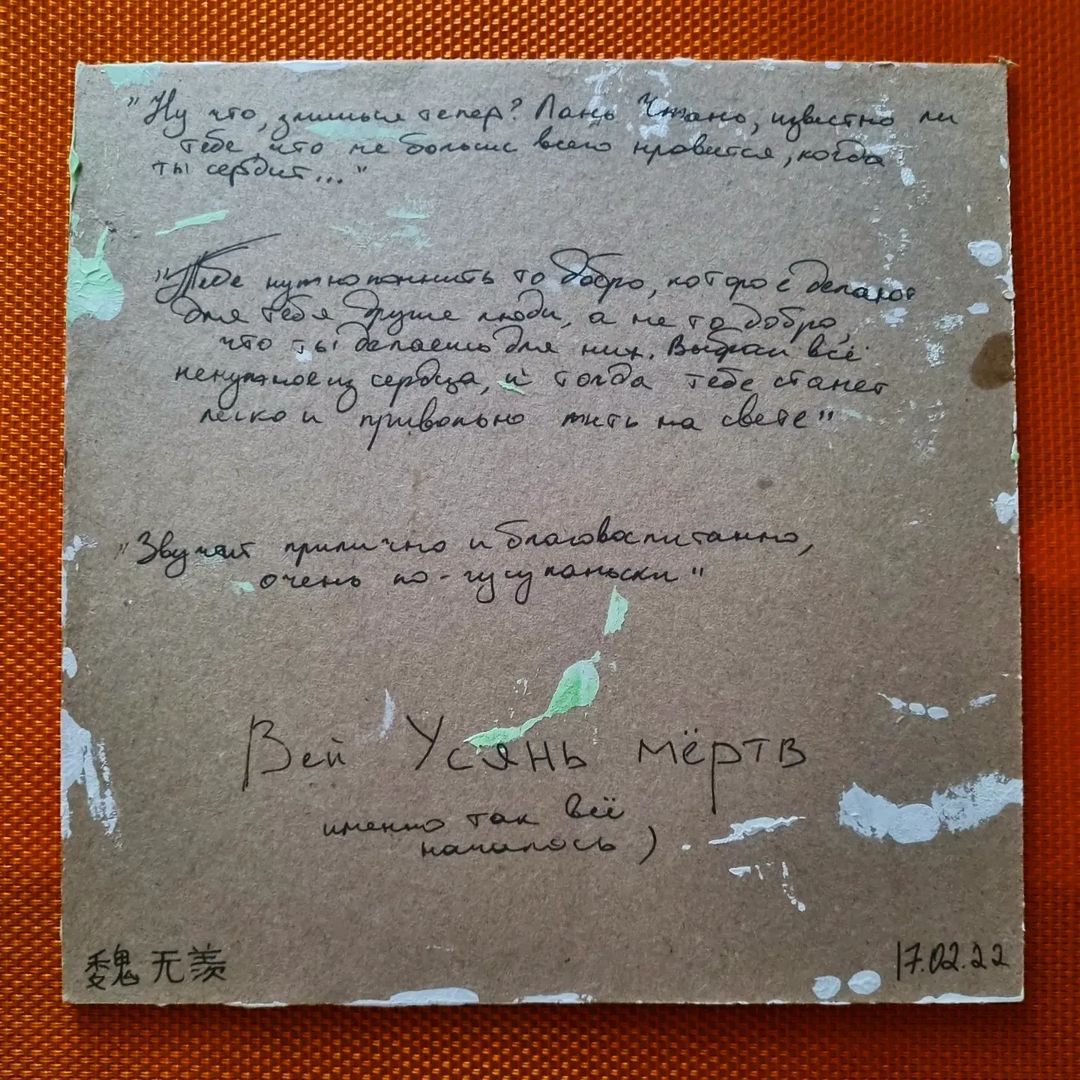 "Ну что, злишься тепер? Лань Чжань, известно ли
тебе, что мне больше всего нравится, когда
ты сердит..."
"Тебе нужно помнить то добро, которое делают
для тебя другие люди, а не то добро,
что ты делаешь для них. Выброси всё
ненужное из сердца, и тогда тебе станет
легко и привольно жить на свете"
"Звучит прилично и благовоспитанно,
очень по-гусуланьски"
Вей Усянь мёртв
именно так всё
началось)
魏无羡
17.02.22